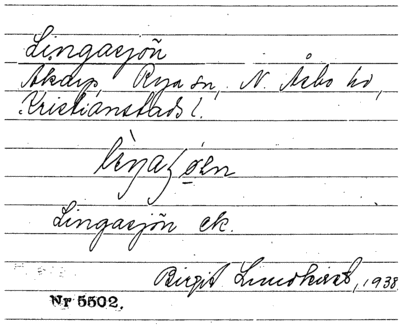 Lingasjön
Åkarp, Rya sn, N. Åsbo hd,
Kristianstads l.
Lingasjön ek.
Birgit Lundkvist, 1938.
Nr 5502.